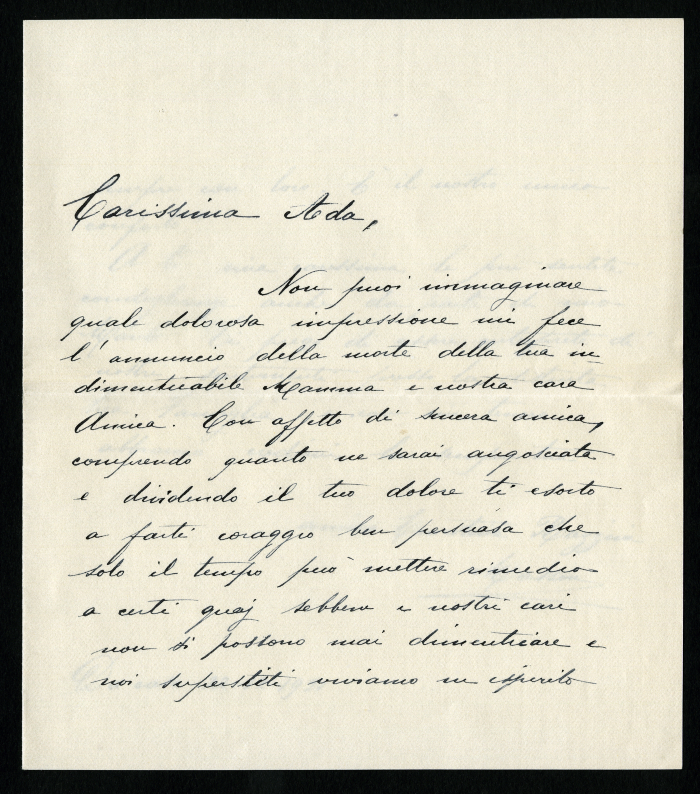 Carissima Ada,
Non puoi immaginare
quale dolorosa impressione mi fece
l'annuncio della morte della tua in
dimenticabile Mamma e nostra cara
Amica. Con affetto di sincera amica,
comprendo quanto ne sarai angosciata
e dividendo il tuo dolore ti esorto
a farti coraggio ben persuasa che
solo il tempo può mettere rimedio
a certi guaj sebbene i nostri cari
non si possono mai dimenticare e
noi superstiti viviamo in ispirito